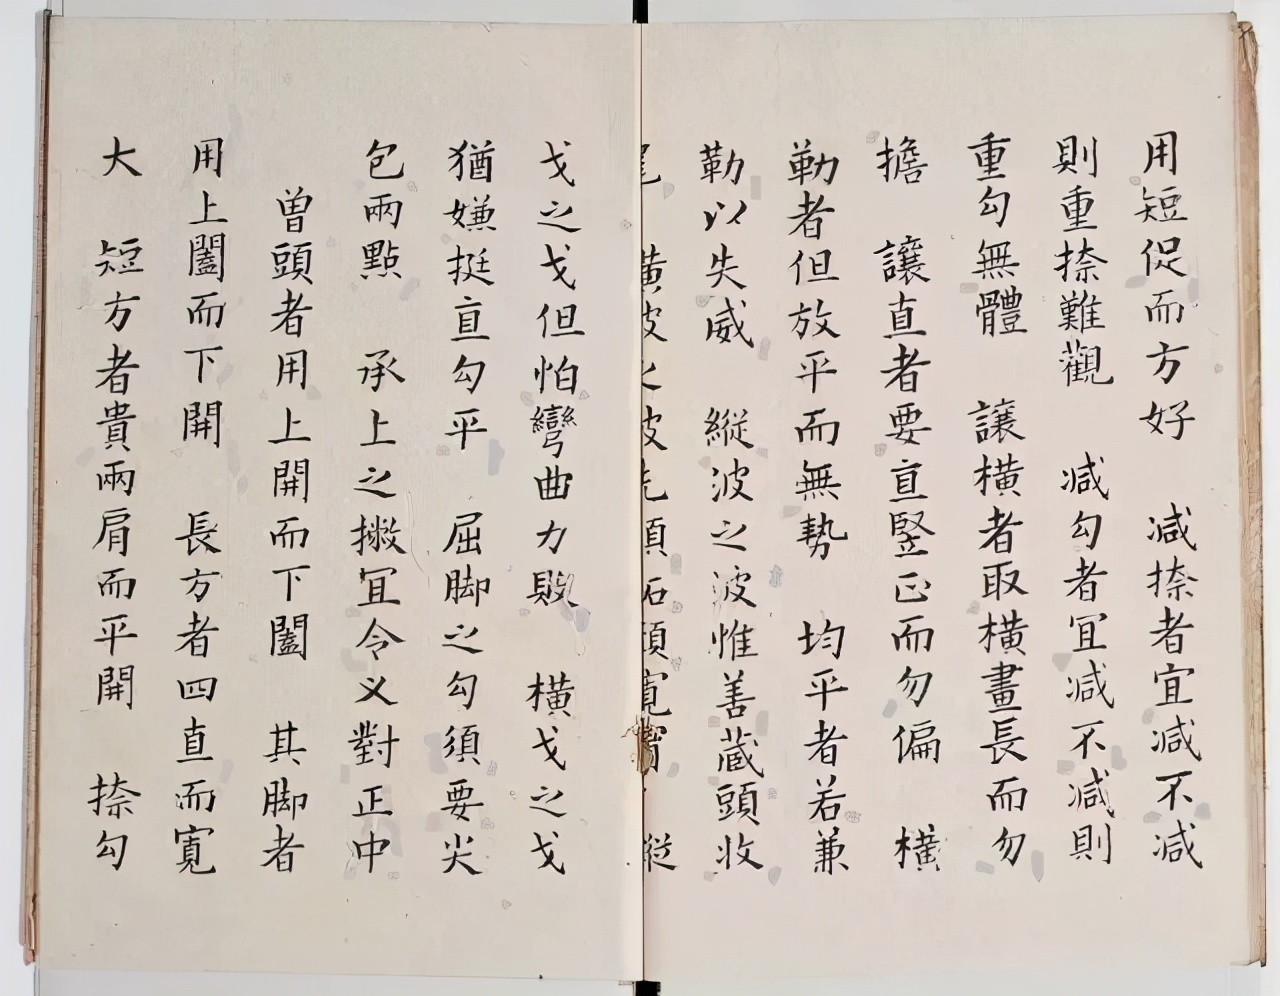 用短促而方好　減捺者宜減不減
則重捺難觀　減勾者宜減不減則
重勾無體　讓橫者取橫畫長而勿
擔　讓直者要直竪正而勿偏　橫
勒者但放平而無勢　均平者若兼
勒以失威　縱波之波惟善蔵頭收
尾　橫波之波先頂　頂寬　縱
戈之戈但怕彎曲力敗　橫戈之戈
猶嫌挺直勾平　屈脚之勾須要尖
包兩點　承上之撇宜令乂對正中
曾頭者用上開而下闔　其脚者
用上闔而下開　長方者四直而寬
大　短方者貴兩肩而平開　捺勾